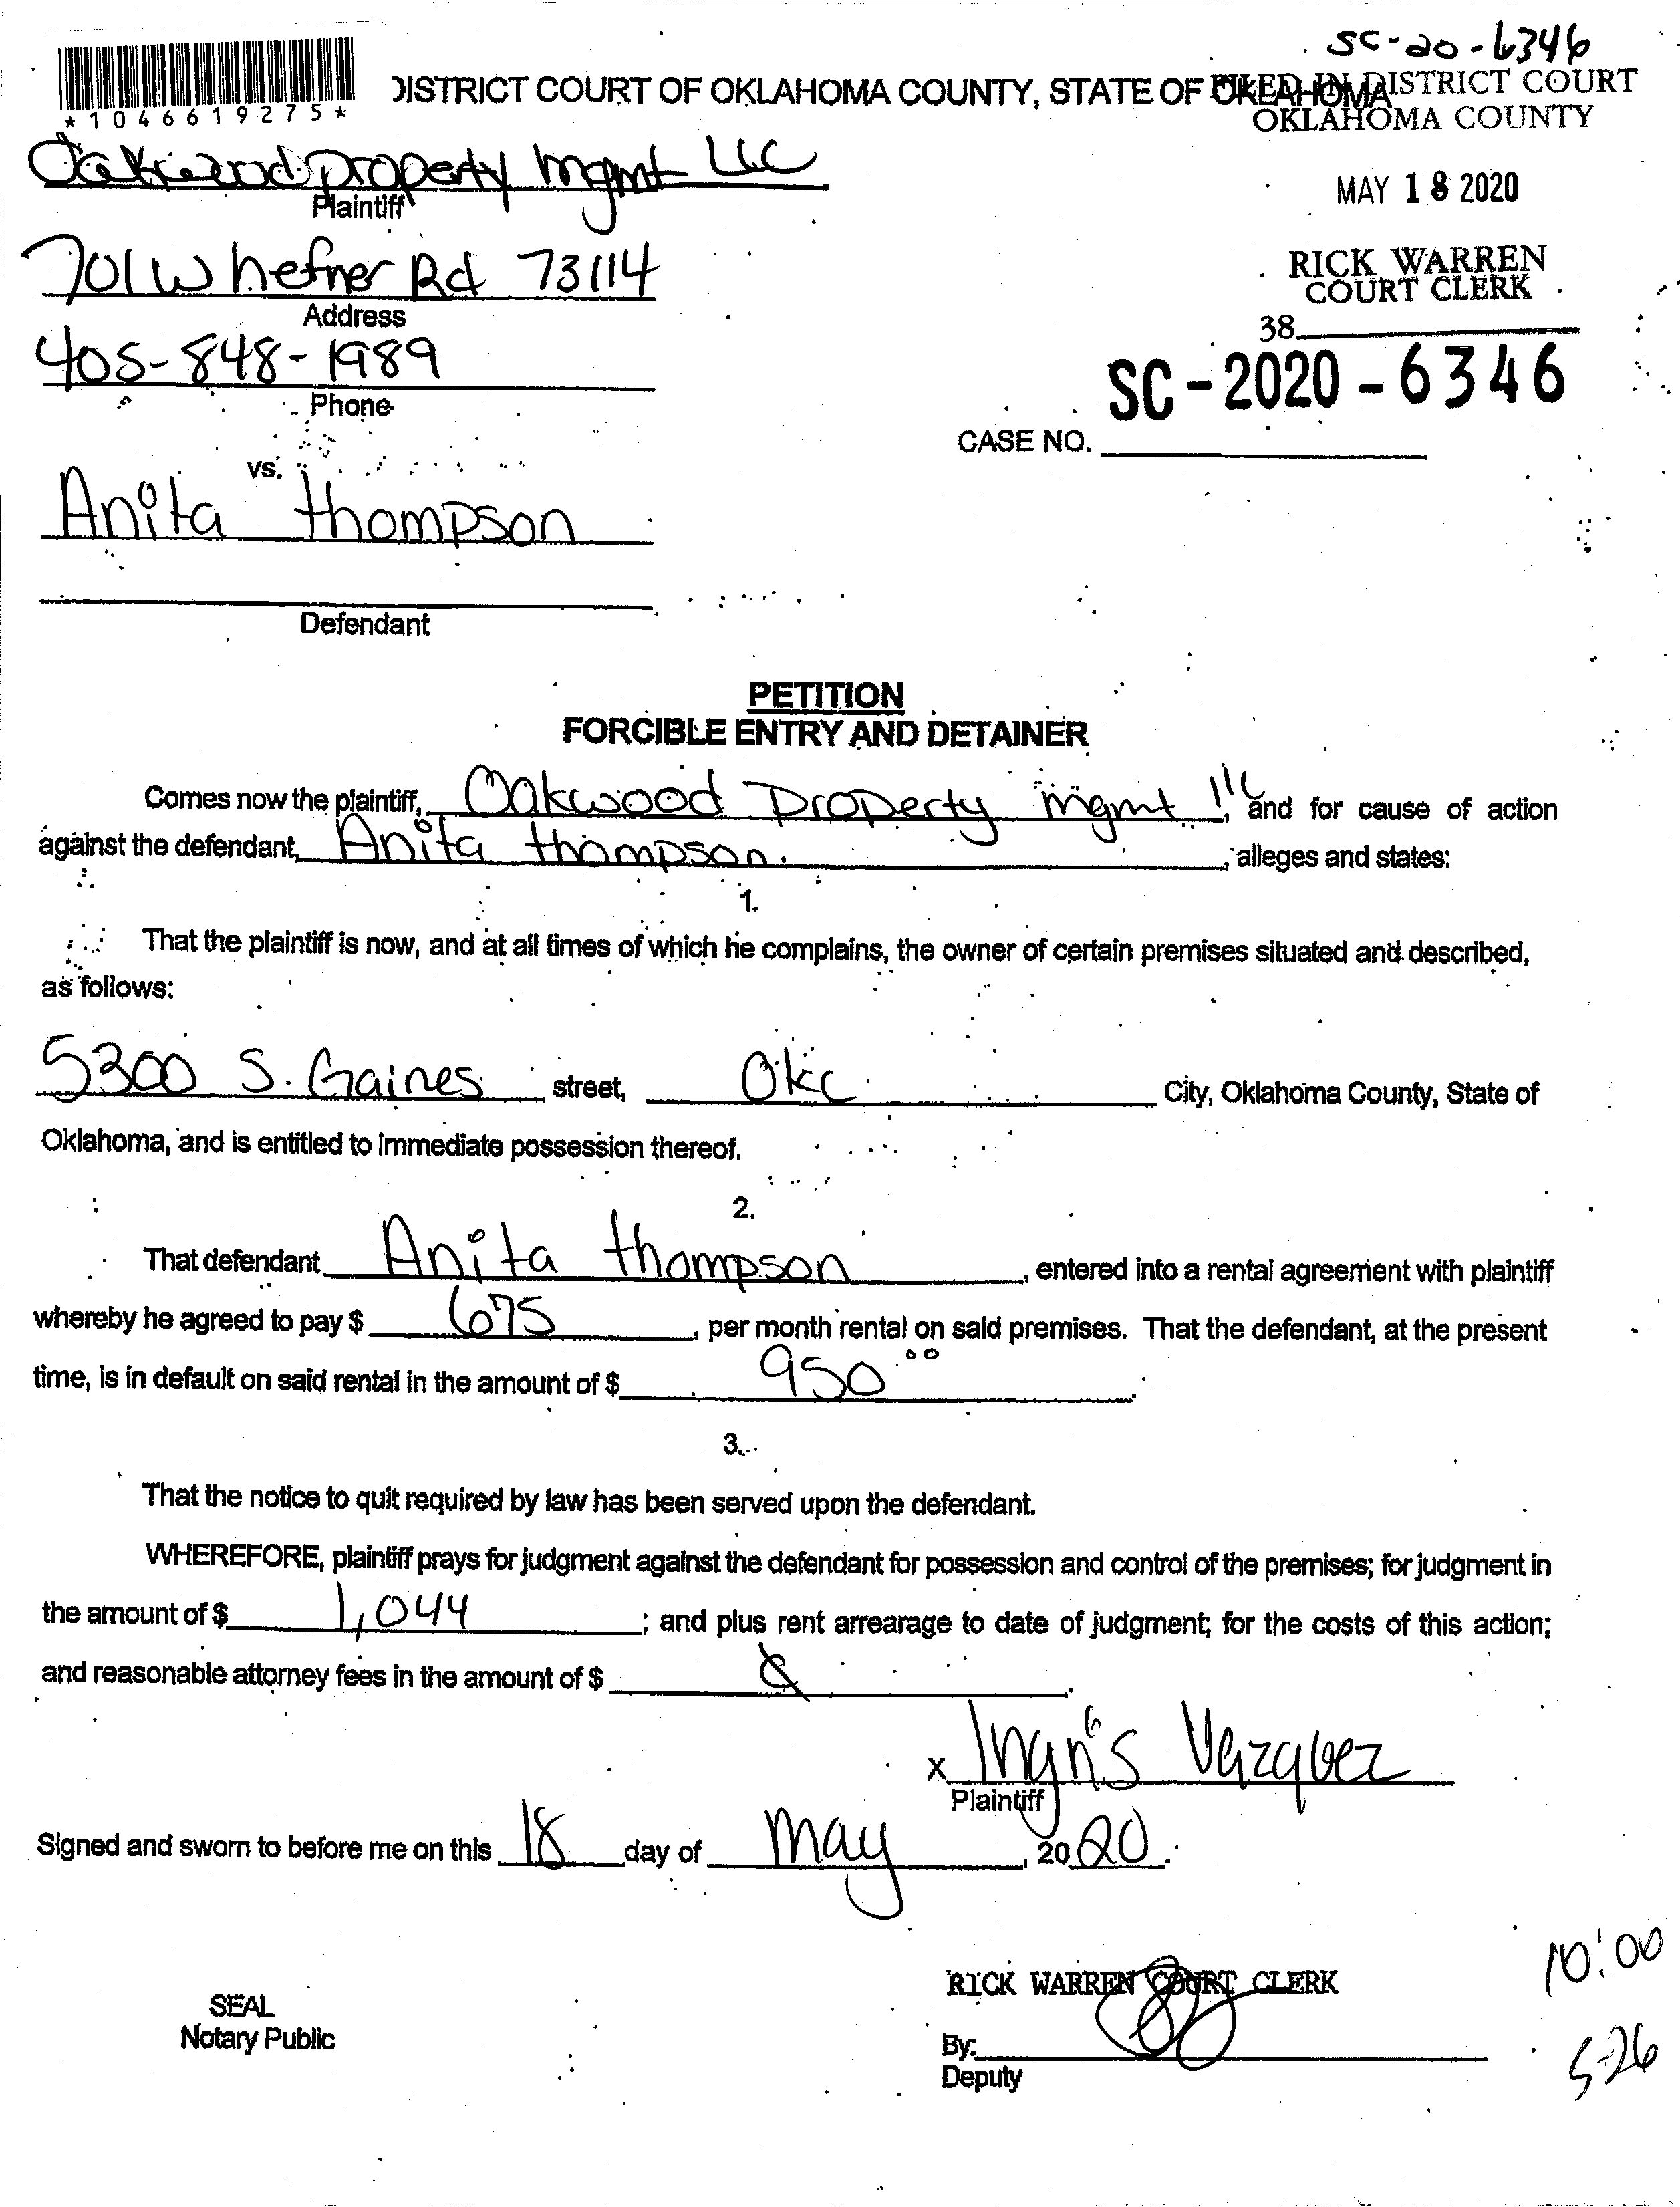 SC-20-6346
DISTRICT COURT OF OKLAHOMA COUNTY, STATE OF OKLAHOMA
FILED IN DISTRICT COURT
OKLAHOMA COUNTY
*1046619275*
Oakwood property mgmt LLC
Plaintiff
MAY 18 2020
701 W hefner Rd 73114
Address
RICK WARREN
COURT CLERK
38
405-848-1989
Phone
SC-2020-6346
CASE NO.
vs.
Anita thompson
Defendant
PETITION
FORCIBLE ENTRY AND DETAINER
Comes now the plaintiff, Oakwood Property mgmt llc, and for cause of action
against the defendant, Anita thompson, alleges and states:
1.
That the plaintiff is now, and at all times of which he complains, the owner of certain premises situated and described,
as follows:
5300 S. Gaines street, Okc City, Oklahoma County, State of
Oklahoma, and is entitled to immediate possession thereof.
2.
That defendant Anita thompson, entered into a rental agreement with plaintiff
whereby he agreed to pay $ 675, per month rental on said premises. That the defendant, at the present
time, is in default on said rental in the amount of $ 950.00.
3.
That the notice to quit required by law has been served upon the defendant.
WHEREFORE, plaintiff prays for judgment against the defendant for possession and control of the premises; for judgment in
the amount of $ 1,044; and plus rent arrearage to date of judgment; for the costs of this action;
and reasonable attorney fees in the amount of $
x Ingris Vazquez
Plaintiff
Signed and sworn to before me on this 18 day of May, 2020.
10:00
RICK WARREN COURT CLERK
SEAL
Notary Public
By:
Deputy
5-26